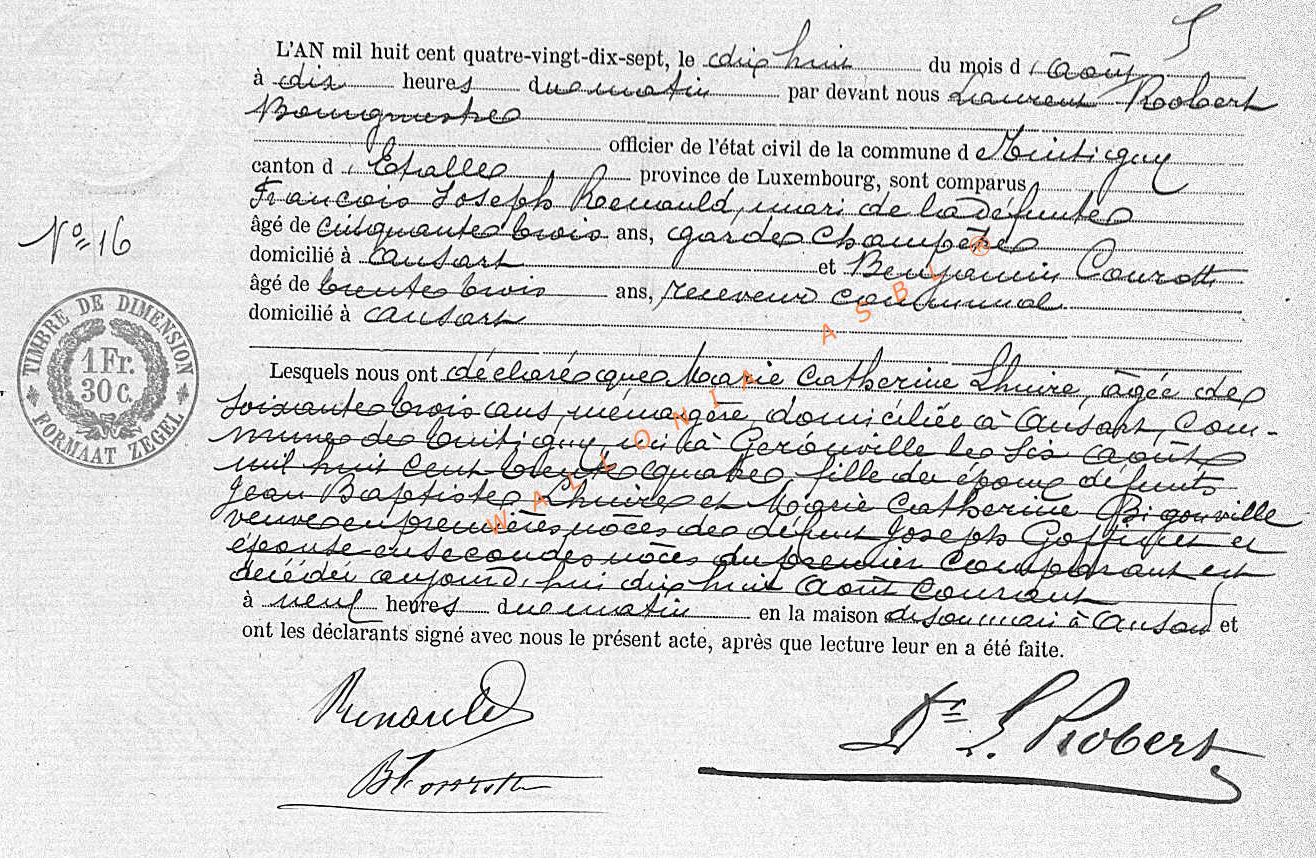 L'AN mil huit cent quatre-vingt-dix-sept, le dix huit du mois d'Août
à dix heures du matin par devant nous Laurent Robert
Bourgmestre
officier de l'état civil de la commune de Tintigny
canton d'Etalle province de Luxembourg, sont comparus
François Joseph Renauld, mari de la défunte
N° 16
âgé de cinquante trois ans, garde champêtre
domicilié à Ansart et Benjamin
âgé de trente trois ans, receveur communal
domicilié à Ansart
TIMBRE DE DIMENSION
1 Fr.
30 c.
FORMAAT ZEGEL
Lesquels nous ont déclaré que Marie Catherine Lhuire, âgée de
soixante trois ans, ménagère, domiciliée à Ansart, com-
mune de Tintigny, née à Gerouville le six Août
mil huit cent trente quatre, fille des époux défunts
Jean Baptiste Lhuire et Marie Catherine Bigonville
veuve en premières nôces de défunt Joseph Goffinet et
épouse en secondes nôces du premier comparant est
décédée aujourd'hui dix huit Août courant
à neuf heures du matin en la maison de son mari à Ansart et
ont les déclarants signé avec nous le présent acte, après que lecture leur en a été faite.
Renauld
Dr L. Robert
WALLONIA ASBL ®